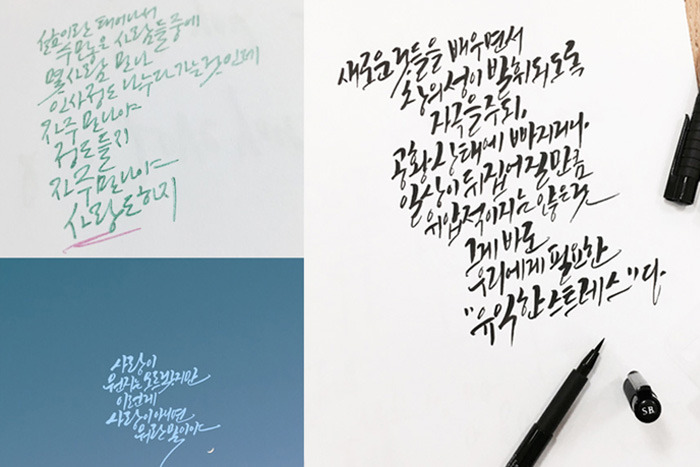 삶이란 태어나서
수많은 사람들 중에
몇 사람 만나
인사정도 나누다 가는 것인데
자주 만나야
정도 들지
자주 만나야
사랑도 하지
사랑이
뭔지는 모르겠지만
이런게
사랑이 아니면
뭐란 말이야
새로운 것들을 배우면서
창의성이 발휘되도록
자극을 주되,
공황상태에 빠지거나,
일상이 뒤집어질만큼
위압적이지는 않은 것
그게 바로
우리에게 필요한
"유익한 스트레스"다.
SB